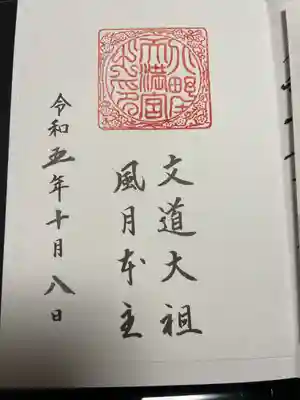 文道大祖
風月本主
令和五年十月八日